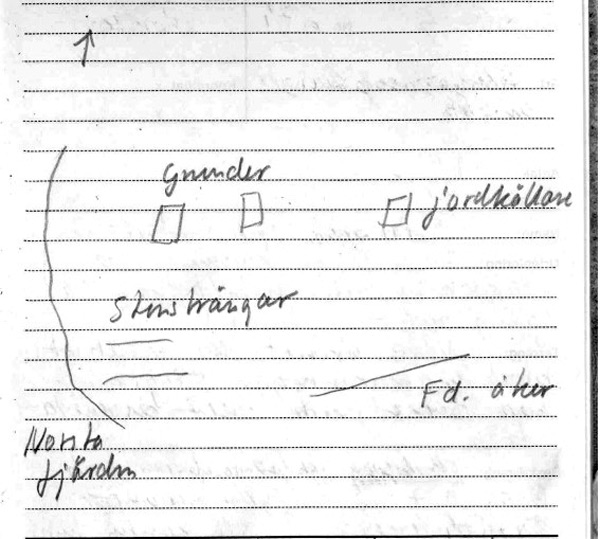 Grunder
jordkällare
Stensträngar
Fd. åker
Norsta
fjärden